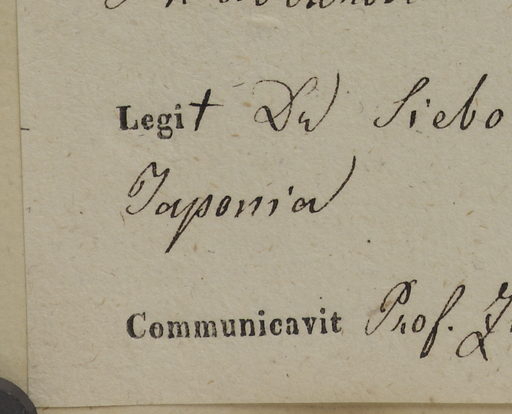 Legit Dr Siebo
Japonia
Communicavit Prof.